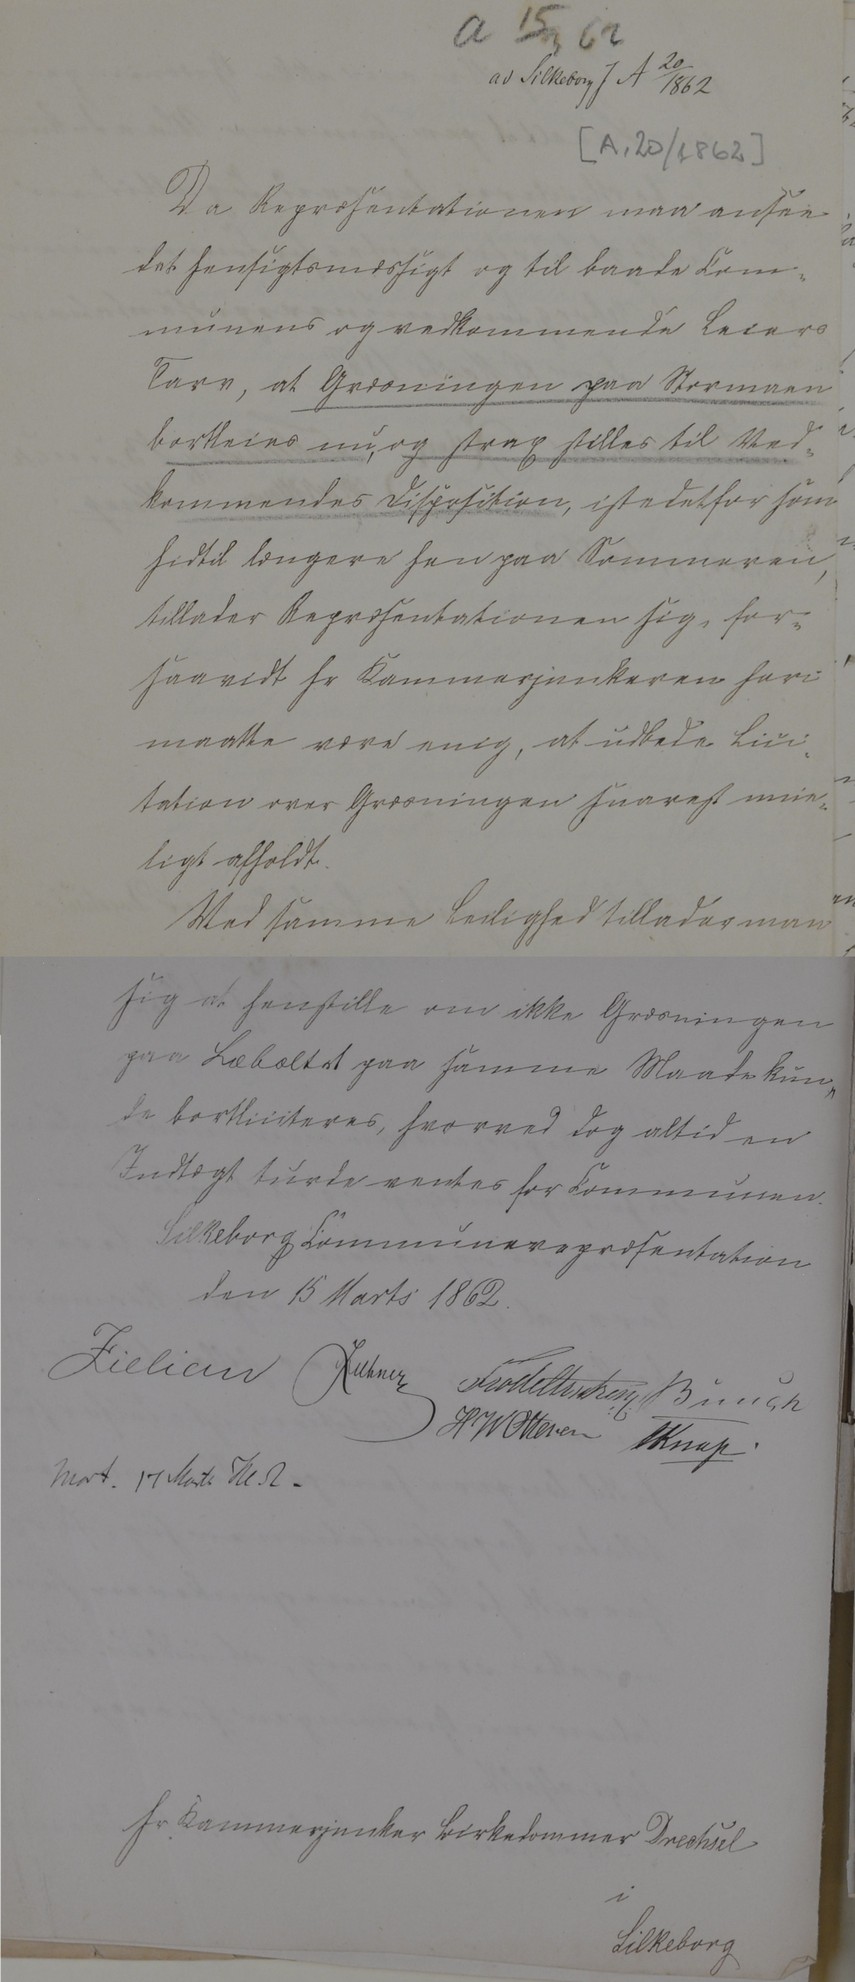 a 15/3 62
ad Silkeborg J A 20/1862
[A. 20/1862]
Da Repræsentationen maa ansee
det hensigtsmæssigt og til baade Com-
munens og vedkommende Leiers
Tarv, at Græsningen paa Stormaen
bortleies nu, og strax stilles til Ved-
kommendes Disposition, istedetfor som
hidtil længere hen paa Sommeren,
tillader Repræsentationen sig, for-
saavidt Hr Kammerjunkeren heri
maatte være enig, at udbede Lici-
tation over Græsningen snarest mue-
ligt afholdt.
Ved samme Leilighed tillader man
sig at henstille om ikke Græsningen
paa Læbæltet paa samme Maade kun-
de bortliciteres, hvorved dog altid en
Indtægt turde ventes for Communen.
Silkeborg Communerepræsentation
den 15 Marts 1862.
Zielian
H W Ottesen Knap.
Mort. 17 Marts
Hr. Kammerjunker Birkedommer Drechsel
i
Silkeborg